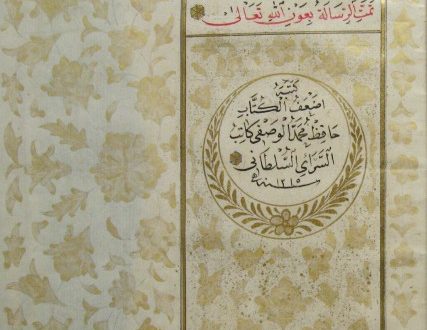 تمت الرسالة بعون الله تعالى
كتبه
اضعف الكتاب
حافظ محمد الوصفى كاتب
السراى السلطانى
سنة ١٢١٥